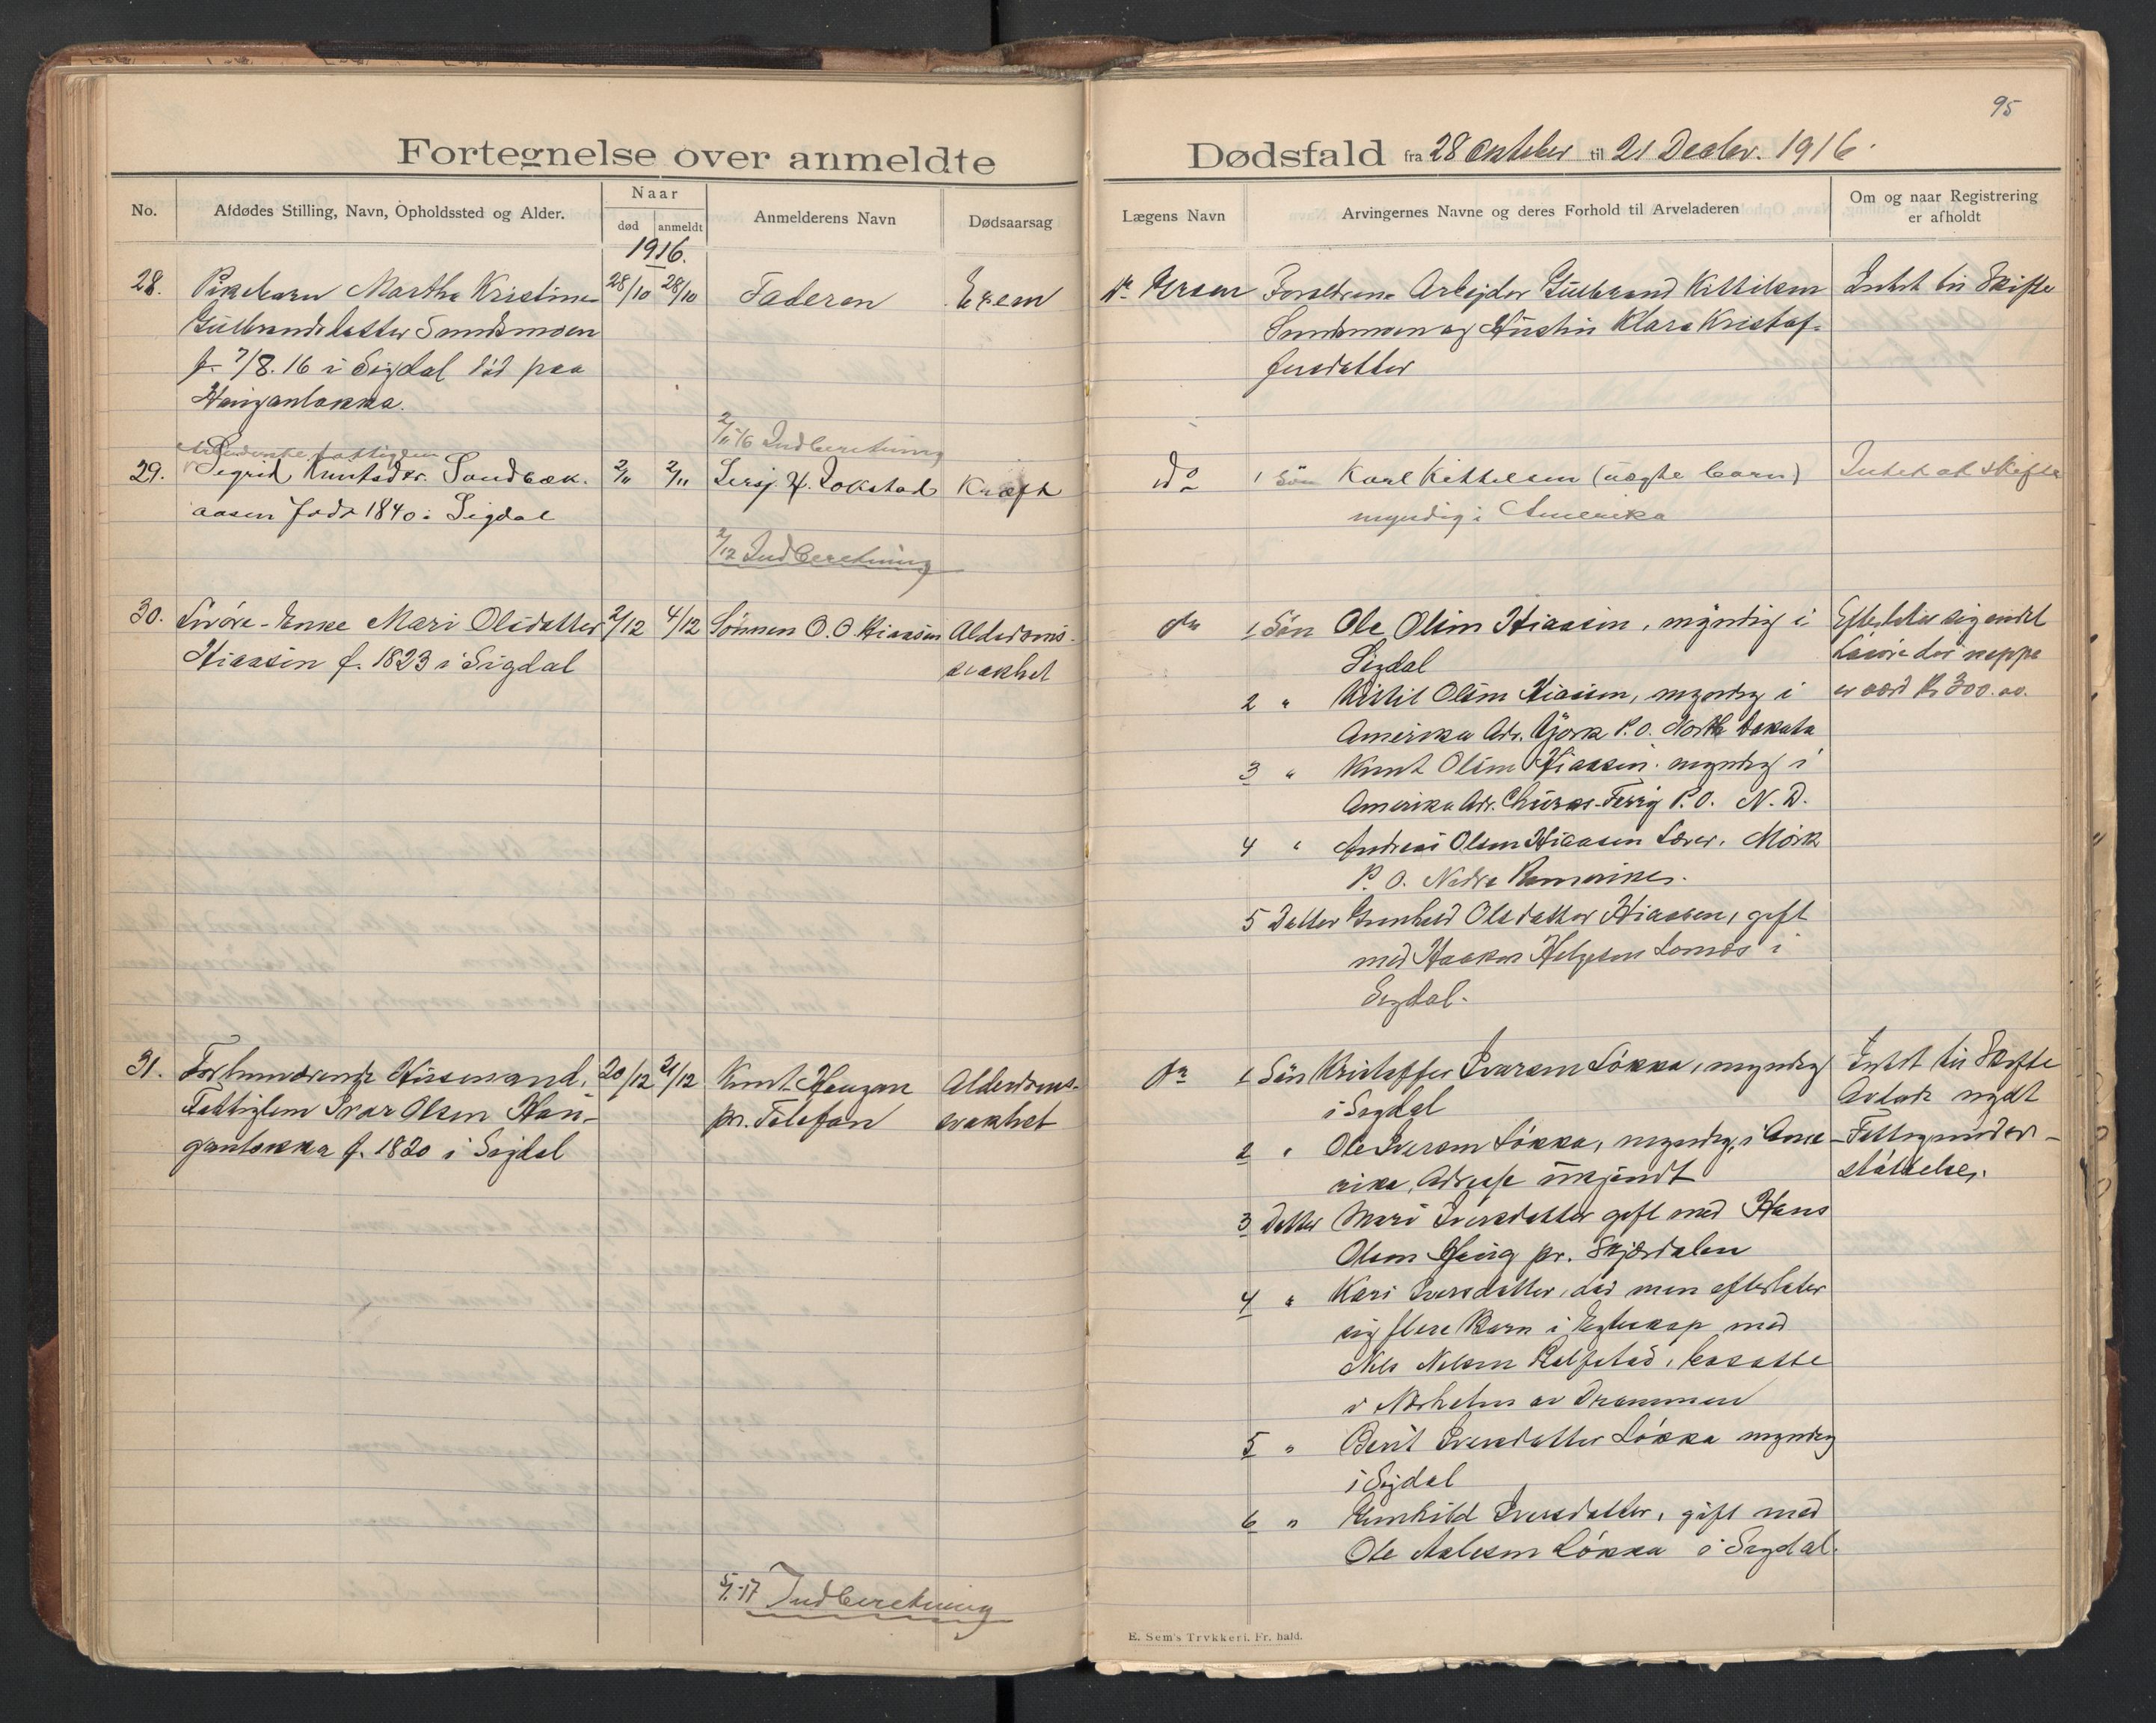 95
Fortegnelse over anmeldte
Dødsfald fra 28 Oktober til 21 Decbr. 1916.
No.
Afdødes Stilling, Navn, Opholdssted og Alder.
Naar
død
anmeldt
Anmelderens Navn
Dødsaarsag
Lægens Navn
Arvingernes Navne og deres Forhold til Arveladeren
Om og naar Registrering
er afholdt
1916.
28.
Pikebarn Martha Kristine
Gulbrandsdatter Sundsmoen
f. 7/8.16 i Sigdal død paa
Hauganløkka.
28/10
28/10
Faderen
Exem
Dr.
Forældrene Arbeider Gulbrand Kittilsen
Sundsmoen og Hustru Klara Kristof-
fersdatter
Intet til Skifte
2/11 16 Indberetning
29.
fattiglem
Sigrid Knutsdtr. Sandbæk-
aasen født 1840 i Sigdal
2/11
2/11
Lensj. H. Lokstad
Kræft
do
1 Søn Karl Kittelsen (uægte barn)
myndig i Amerika
Intet at skifte
2/12 Indberetning
30.
Livøre-Enke Mari Olsdatter
Hiaasen f. 1823 i Sigdal
2/12
4/12
Sønnen O. O. Hiaasen
Alderdoms-
svakhet
do
1 Søn Ole Olsen Hiaasen, myndig i
Sigdal
2 " Kittil Olsen Hiaasen, myndig i
Amerika Adr. York P.O. North Dakota
3 " Knut Olsen Hiaasen. myndig i
Amerika Adr. Churchs-Ferry P.O. N.D.
4 " Andreas Olsen Hiaasen Lærer. Mork
P.O. Nedre Romerike.
5 Datter Gunhild Olsdatter Hiaasen, gift
med Haakon Helgesen Lomås i
Sigdal.
Efterlater sig endel
Løsøre der neppe
er værd Kr 300.00.
31.
Forhenværende Husmand,
Fattiglem Ivar Olsen Hau-
ganløkka f. 1820 i Sigdal
20/12
21/12
Knut Haugan
pr. Telefon
Alderdoms-
svakhet
do
1 Søn Kristoffer Iversen Løkka, myndig
i Sigdal
2 " Ole Iversen Løkka, myndig, i Ame-
rika, Adresse ukjendt
3 Datter Mari Iversdatter gift med Hans
Olsen Haug pr. Skjærdalen
4 " Kari Iversdatter, død men efterlater
sig flere Barn i Egteskap med
Nils Nilsen, bosatte
i av Drammen
5 " Berit Iversdatter Løkka myndig
i Sigdal
6 " Gunhild Iversdatter, gift med
Ole Løkka i Sigdal.
Intet til Skifte
Avdøde nydt
Fattigunder-
støttelse.
5/1.-17 Indberetning
E. Sem's Trykkeri. Fr. hald.